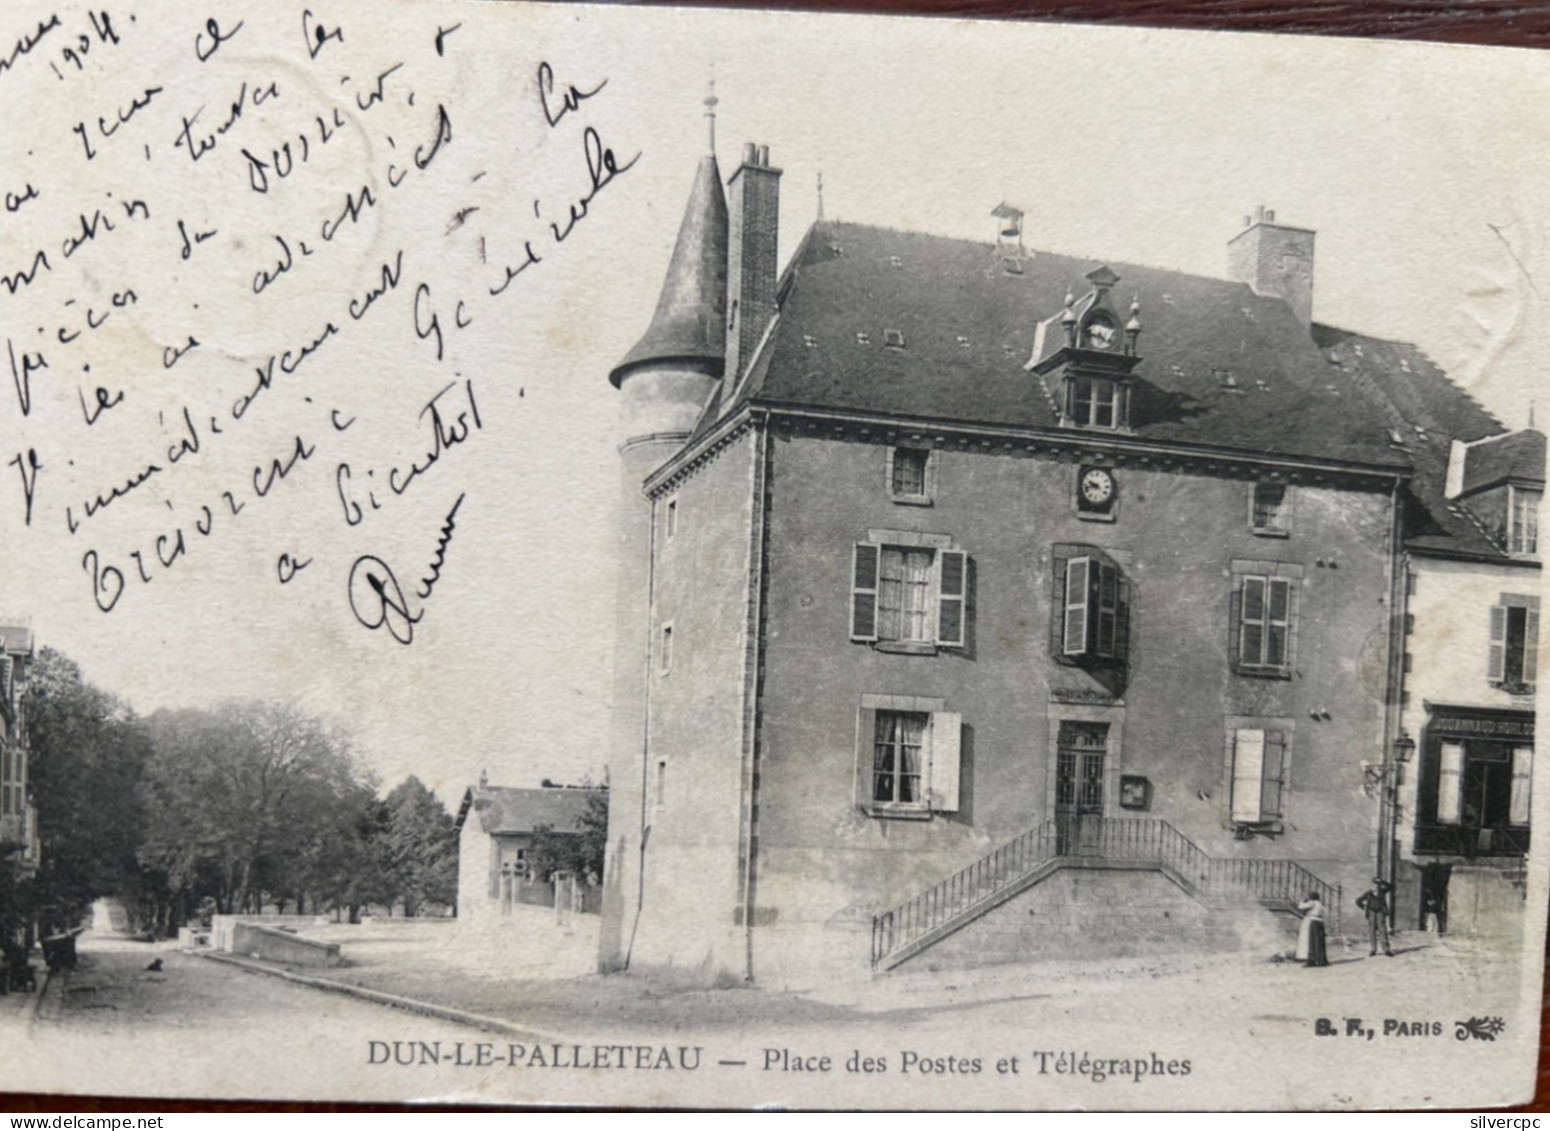 1904.
ai reçu ce
matin toutes les
pièces du dossier, &
je les ai adressées
immédiatement à la
trésorerie Générale
à bientôt.
DUN-LE-PALLETEAU — Place des Postes et Télégraphes
B. F., PARIS
silvercpc